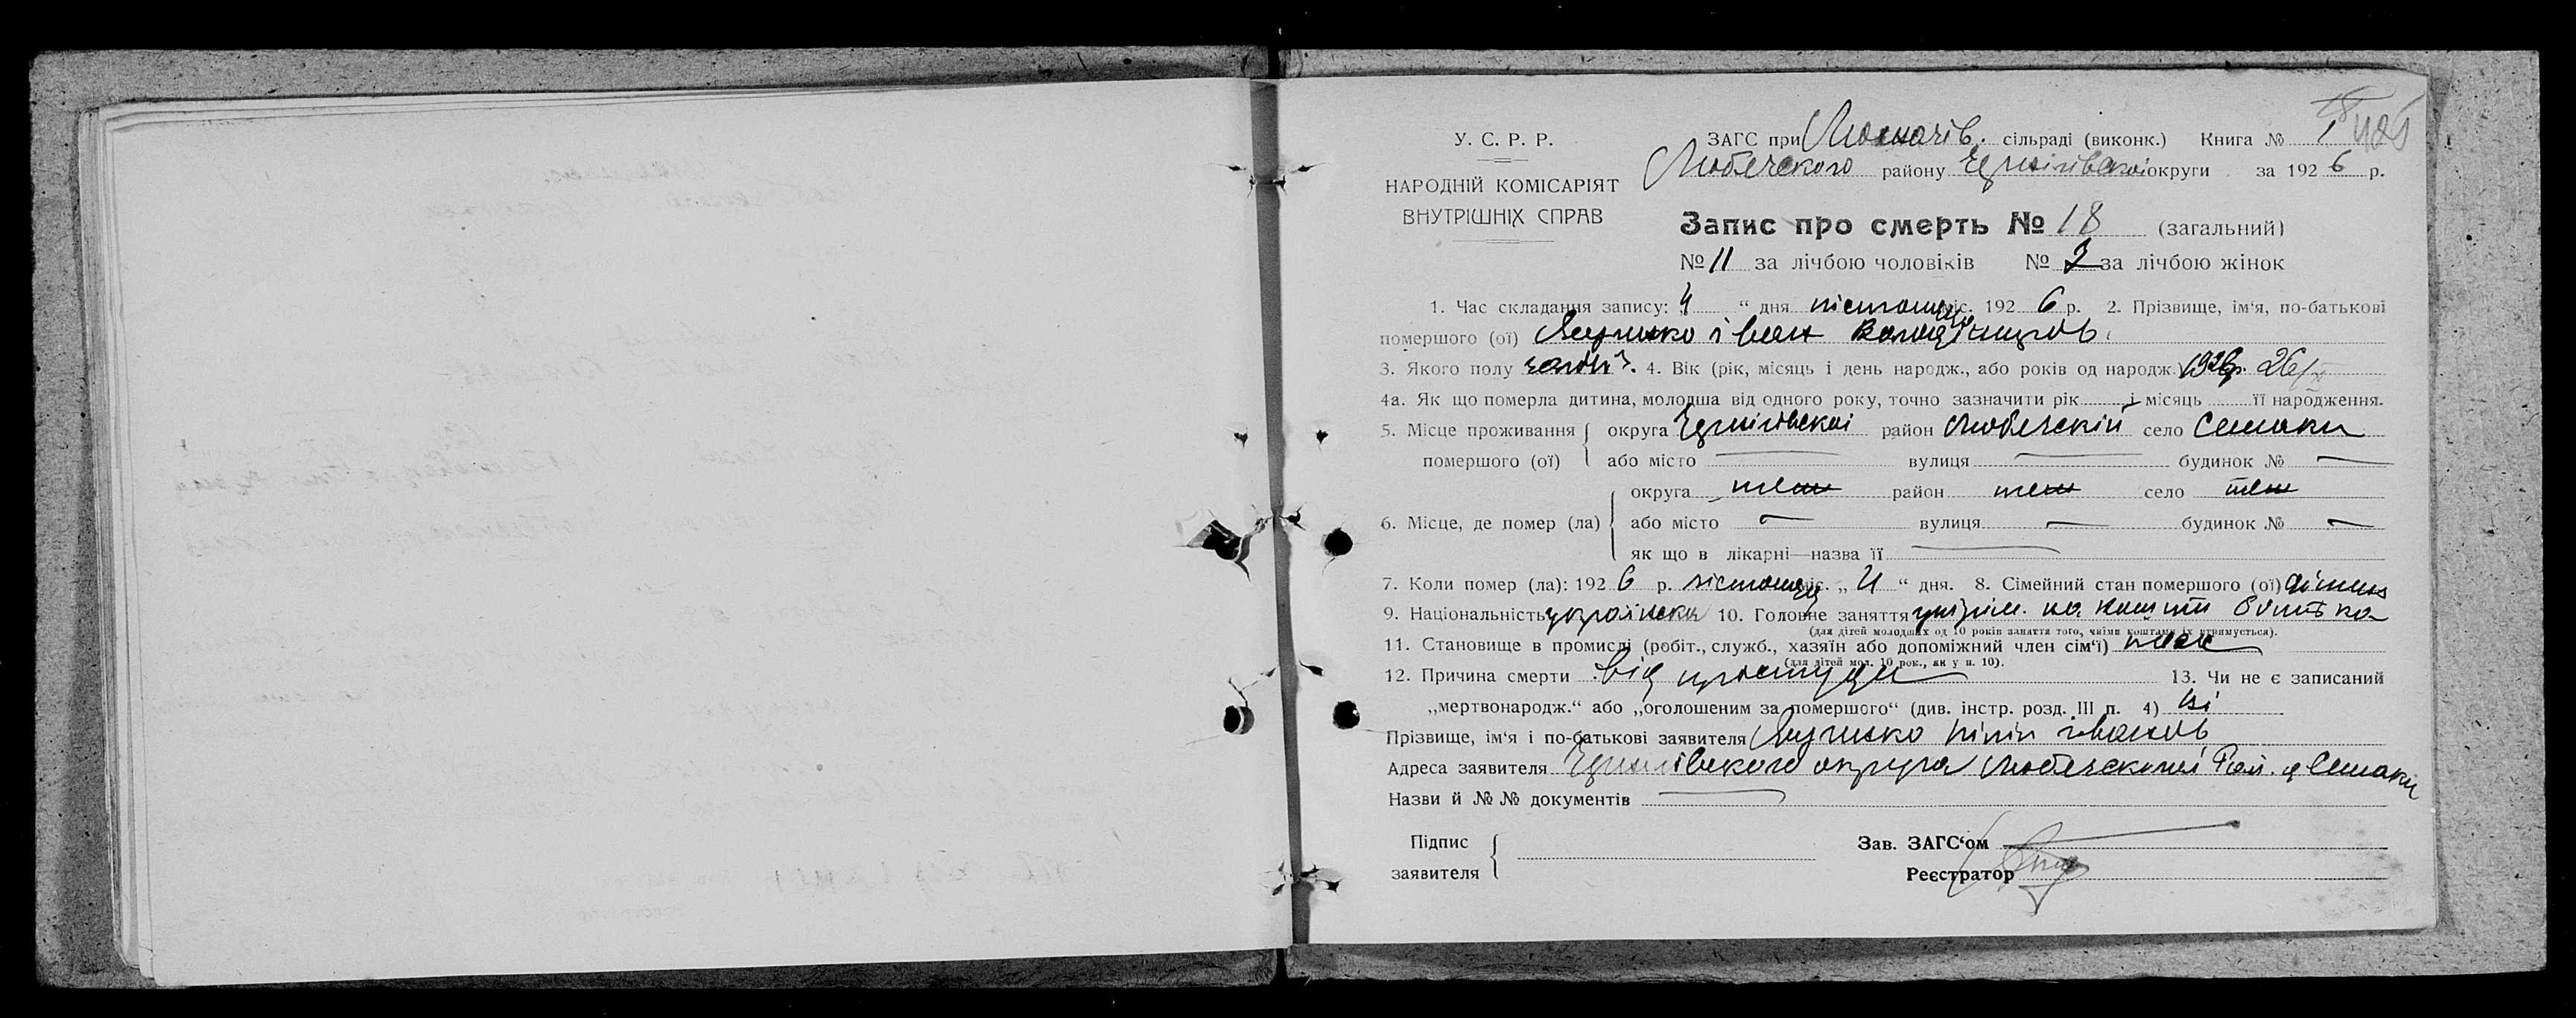 У. С. Р. Р.
НАРОДНІЙ КОМІСАРІЯТ
ВНУТРІШНІХ СПРАВ
ЗАГС при сільраді (виконк.) Книга № 1
Любечского району Чернігівскоі округи за 1926 р.
Запис про смерть № 18 (загальний)
№ 11 за лічбою чоловіків № за лічбою жінок
1. Час складання запису: „4“ дня лістопаду міс. 1926 р. 2. Прізвище, ім‘я, по-батькові
помершого (ої) іван
3. Якого полу 4. Вік (рік, місяць і день народж., або років од народж.) 1926р. 26/X
4а. Як що померла дитина, молодша від одного року, точно зазначити рік і місяць її народження.
5. Місце проживання помершого (ої) округа Чернігівскоі район Любечскій село Семаки
або місто — вулиця — будинок № —
6. Місце, де помер (ла) округа теж район теж село теж
або місто — вулиця — будинок № —
як що в лікарні—назва її —
7. Коли помер (ла): 1926 р. лістопаду міс. „4“ дня. 8. Сімейний стан помершого (ої)
9. Національність українска 10. Головне заняття на кошти батька
(для дітей молодших од 10 років заняття того, чиїми коштами їх утримується).
11. Становище в промислі (робіт., служб., хазяїн або допоміжний член сім‘ї) теж
(для дітей мол. 10 рок., як у п. 10).
12. Причина смерти від простуди 13. Чи не є записаний
„мертвонародж.“ або „оголошеним за помершого“ (див. інстр. розд. III п. 4) ні
Прізвище, ім‘я і по-батькові заявителя іванов
Адреса заявителя Чернігівского округа Любечскоі Рай. с Семаки
Назви й №№ документів —
Підпис
заявителя
Зав. ЗАГС‘ом
Реєстратор